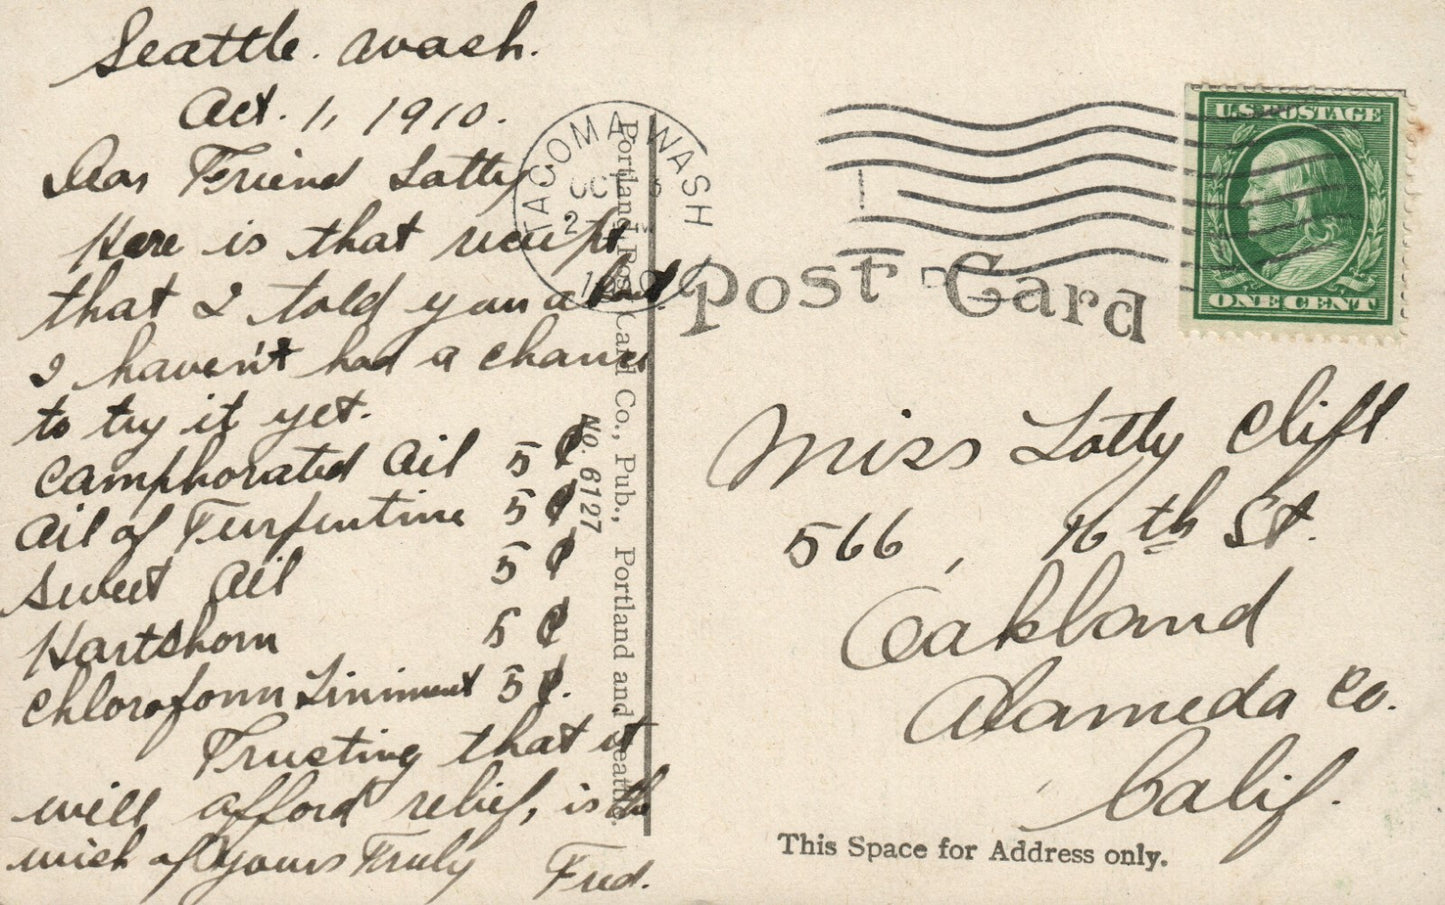 Seattle. Wash.
Oct. 1, 1910.
Dear Friend Lotty
Here is that receipt
that I told you about
I haven't had a chance
to try it yet.
Camphorated Oil 5¢
Oil of Turpentine 5¢
Sweet Oil 5¢
Hartshorn 5¢
Chloroform Liniment 5¢.
Trusting that it
will afford relief, is the
wish of Yours Truly
Fred.
TACOMA WASH
OC
2
Portland Post Card Co., Pub., Portland and Seattle.
No. 6127
Post Card
U.S. POSTAGE
ONE CENT
Miss Lotty Clift
566, 16th St.
Oakland
Alameda Co.
Calif.
This Space for Address only.